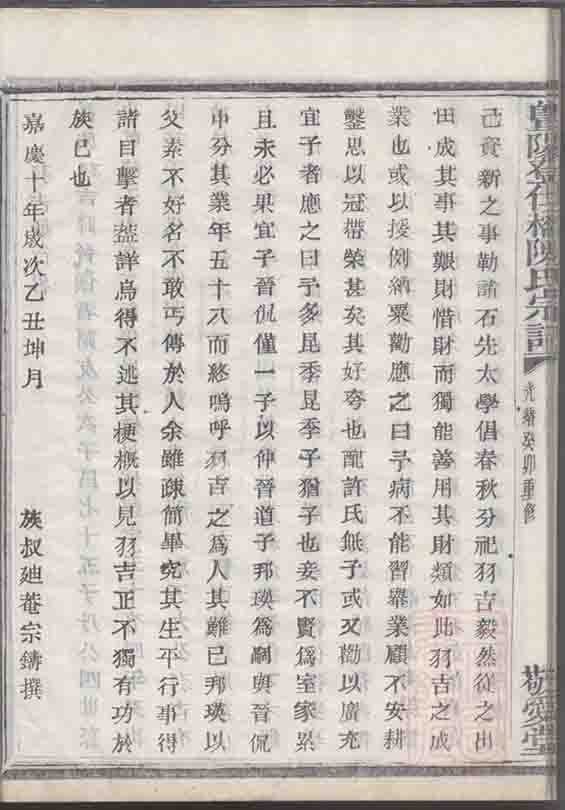 暨陽孝仁橋陳氏宗譜
光緒癸卯重修
敬愛堂
己資新之事勒諸石先太學倡春秋分祀羽吉毅然從之出
田成其事其艱財惜財而獨能善用其財類如此羽吉之成
業也或以援例納粟勸應之曰予病不能習舉業顧不安耕
鑿思以冠帶榮甚矣其好夸也配許氏無子或又勸以廣充
宜子者應之曰予多昆季昆季子猶子也妾不賢爲室家累
且未必果宜子晉侃僅一子以仲晉道子邦瑛爲嗣與晉侃
中分其業年五十八而終嗚呼羽吉之爲人其難已邦瑛以
父素不好名不敢丐傳於人余雖疎簡畢究其生平行事得
諸目擊者葢詳烏得不述其梗概以見羽吉正不獨有功於
族已也
嘉慶十年歲次乙丑坤月
族叔廸菴宗鑄撰